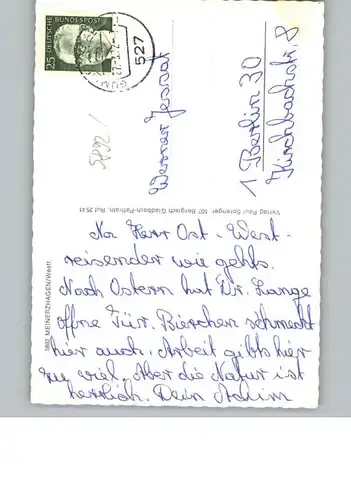 25 DEUTSCHE BUNDESPOST
527
5892
Werner Jessat
1 Berlin 30
Kirchbachstr. 8
Verlag Paul Sprenger 507 Bergisch Gladbach-Paffrath, Ruf 25 41
5892 MEINERZHAGEN/Westf.
Na Herr Ost-West-
reisender wie gehts.
Nach Ostern hat Dr. Lange
offne Tür. Bierchen schmeckt
hier auch. Arbeit gibts hier
zu viel. Aber die Natur ist
herrlich. Dein Achim